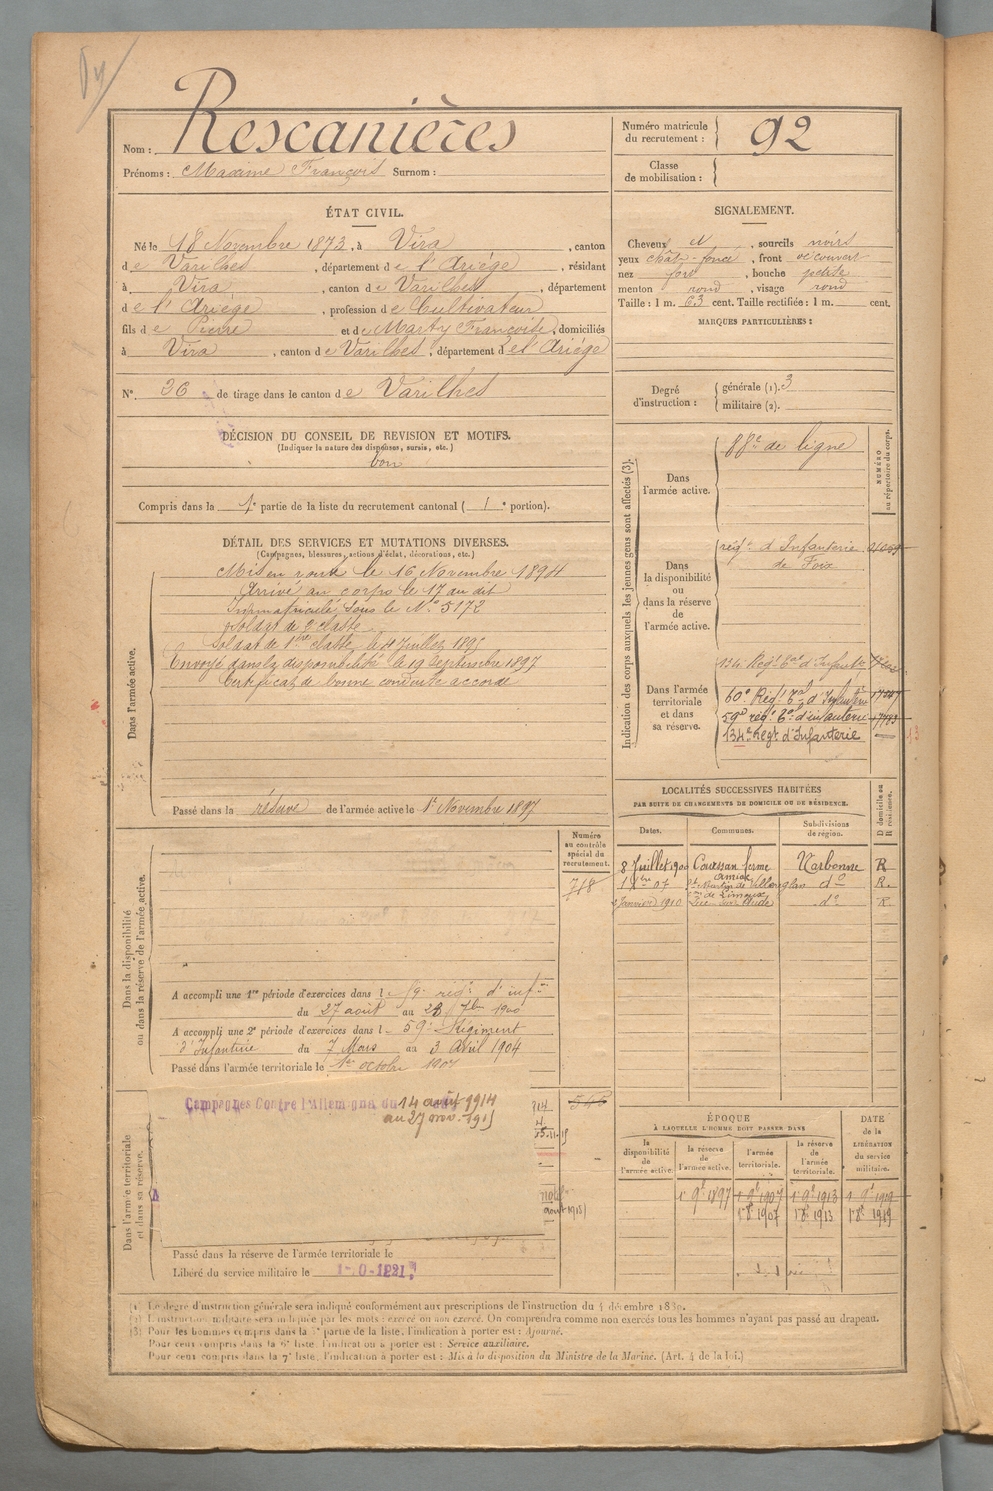 Rescanières
Nom :
Prénoms : Maxime François Surnom :
Numéro matricule du recrutement : 92
Classe de mobilisation :
ÉTAT CIVIL.
Né le 18 Novembre 1873, à Vira, canton
de Varilhes, département de l'Ariège, résidant
à Vira, canton de Varilhes, département
de l'Ariège, profession de Cultivateur
fils de Pierre et de Marty Françoise, domiciliés
à Vira, canton de Varilhes, département de l'Ariège
N° 26 de tirage dans le canton de Varilhes
SIGNALEMENT.
Cheveux et, sourcils noirs
yeux chât-foncé, front découvert
nez fort, bouche petite
menton rond, visage rond
Taille : 1 m. 63 cent. Taille rectifiée : 1 m. cent.
MARQUES PARTICULIÈRES :
Degré d'instruction :
générale (1). 3
militaire (2).
DÉCISION DU CONSEIL DE REVISION ET MOTIFS.
(Indiquer la nature des dispenses, sursis, etc.)
bon
Compris dans la 1e partie de la liste du recrutement cantonal ( 1 e portion).
DÉTAIL DES SERVICES ET MUTATIONS DIVERSES.
(Campagnes, blessures, actions d'éclat, décorations, etc.)
Dans l'armée active.
Mis en route le 16 Novembre 1894
Arrivé au corps le 17 au dit
Immatriculé sous le N° 5172
Soldat de 2e classe
Soldat de 1ère classe le Juillet 1895
Envoyé dans la disponibilité le 19 Septembre 1897
Certificat de bonne conduite accordé
Passé dans la réserve de l'armée active le 1er Novembre 1897
Indication des corps auxquels les jeunes gens sont affectés (3).
NUMÉRO au répertoire du corps.
Dans l'armée active.
88e de ligne
Dans la disponibilité ou dans la réserve de l'armée active.
régt d'Infanterie
de Foix
Dans l'armée territoriale et dans sa réserve.
134 Régt tal d'Infanterie
60e Régt tal d'Infanterie
59e régt tal d'infanterie
134e Régt d'Infanterie
LOCALITÉS SUCCESSIVES HABITÉES
PAR SUITE DE CHANGEMENTS DE DOMICILE OU DE RÉSIDENCE.
D domicile ou R résidence.
Dates. Communes. Subdivisions de région.
8 Juillet 1900 Coursan ferme Narbonne R
1 Xbre 07 St Martin de Villereglan do R.
Janvier 1910 do R
Numéro au contrôle spécial du recrutement.
718
Dans la disponibilité ou dans la réserve de l'armée active.
A accompli une 1re période d'exercices dans l e 59e régt d'infie
du 27 août au 23 7bre 1900
A accompli une 2e période d'exercices dans l e 59e Régiment
d'Infanterie du 7 Mars au 3 Avril 1904
Passé dans l'armée territoriale le 1er octobre 1907
Dans l'armée territoriale et dans sa réserve.
Campagnes Contre l'Allemagne du 14 août 1914
au 27 nov. 1915
Passé dans la réserve de l'armée territoriale le
Libéré du service militaire le
ÉPOQUE
À LAQUELLE L'HOMME DOIT PASSER DANS
DATE de la LIBÉRATION du service militaire.
la disponibilité de l'armée active. la réserve de l'armée active. l'armée territoriale. la réserve de l'armée territoriale.
1 9e 1897 1 9e 1907 1 9e 1913 1 9e 1919
1 8e 1907 1 8e 1913 1 8e 1919
(1) Le degré d'instruction générale sera indiqué conformément aux prescriptions de l'instruction du 4 décembre 1889.
(2) L'instruction militaire sera indiquée par les mots : exercé ou non exercé. On comprendra comme non exercés tous les hommes n'ayant pas passé au drapeau.
(3) Pour les hommes compris dans la 5e partie de la liste, l'indication à porter est : Ajourné.
Pour ceux compris dans la 6e liste, l'indication à porter est : Service auxiliaire.
Pour ceux compris dans la 7e liste, l'indication à porter est : Mis à la disposition du Ministre de la Marine. (Art. 4 de la loi.)